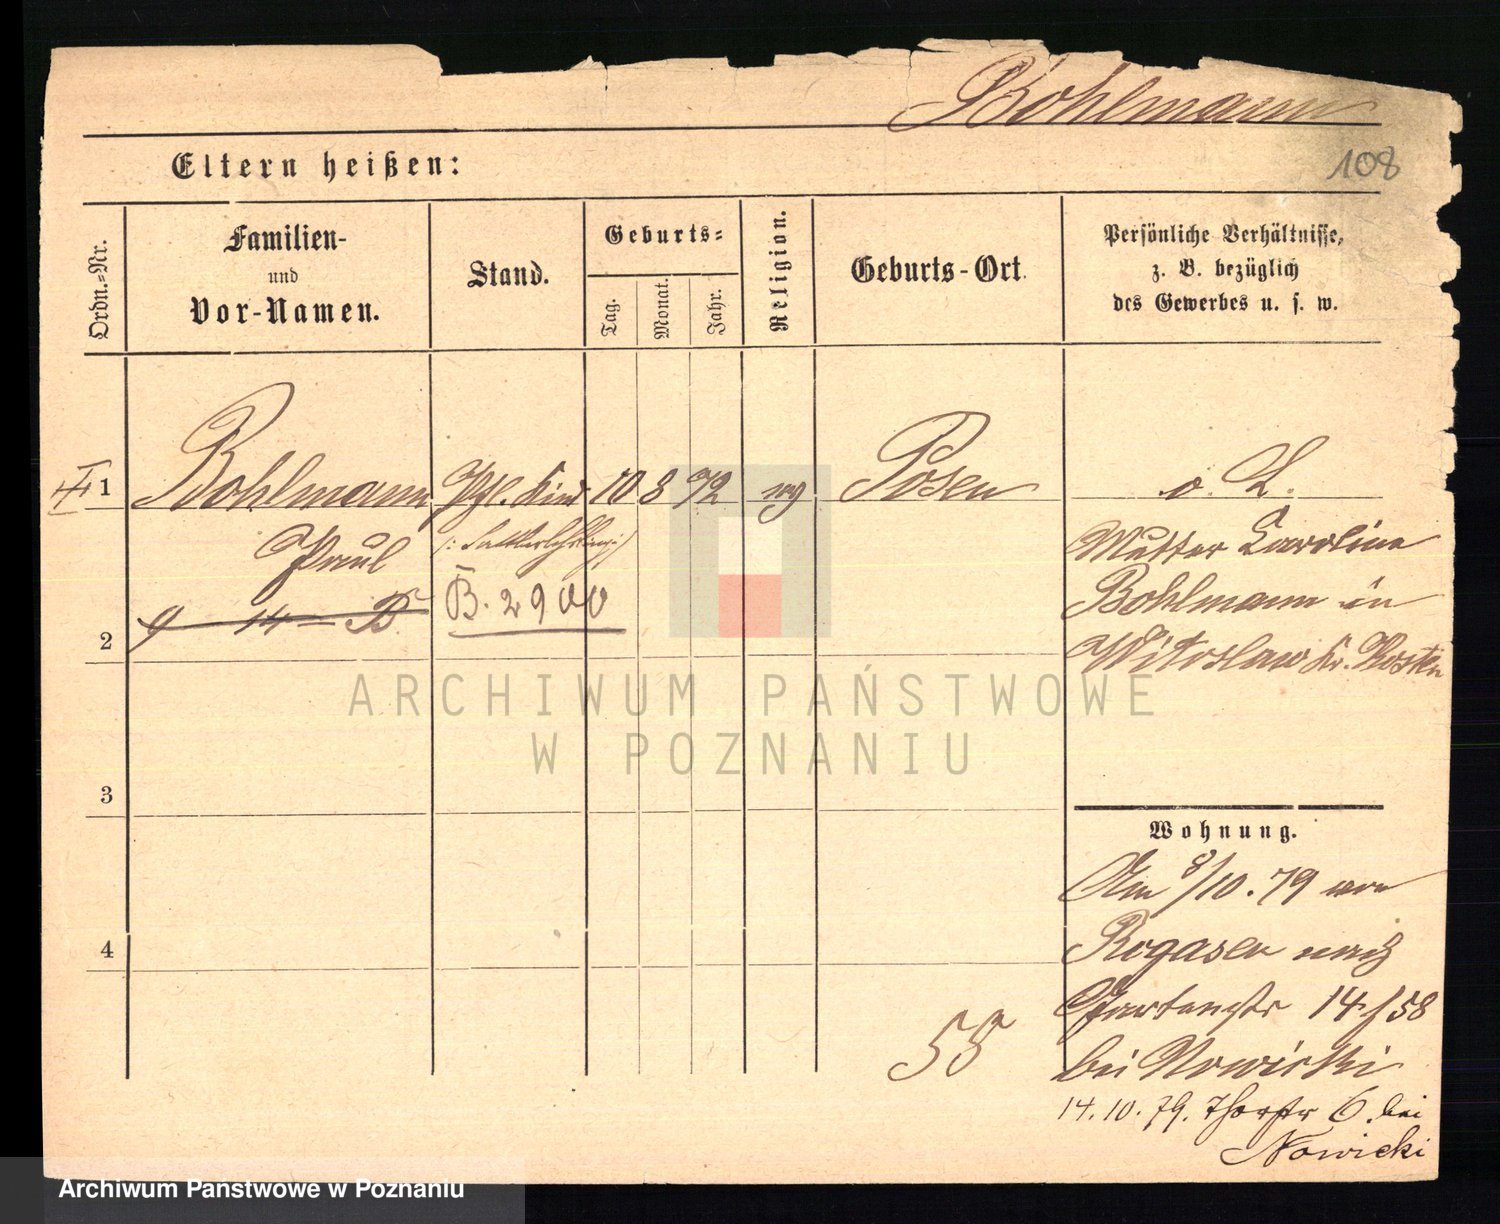 Bohlmann
108
Eltern heißen:
Ordn.=Nr.
Familien-
und
Vor-Namen.
Stand.
Geburts=
Tag.
Monat.
Jahr.
Religion.
Geburts-Ort
Persönliche Verhältnisse,
z. B. bezüglich
des Gewerbes u. s. w.
1 Bohlmann Pfl. Kind 10 8 72 Posen o. L.
Paul
Mutter Caroline
B. 2900
Bohlmann in
9 14 B.
2
Witoslaw Kr. Kosten
ARCHIWUM PAŃSTWOWE
W POZNANIU
3
Wohnung.
Am 8/10. 79 von
Rogasen nach
4
Gartenstr 14/58
55
bei Nowicki
14. 10. 79. Thorstr 6. bei
Nowicki
Archiwum Państwowe w Poznaniu